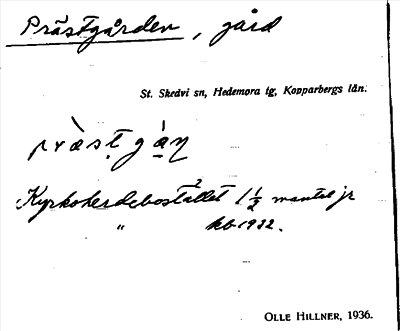 Prästgården, gård
St. Skedvi sn, Hedemora tg, Kopparbergs län.
præ̀sṭgá̱ṇ
Kyrkoherdebostället 1 1/2 mantal jr
" kb 1932.
OLLE HILLNER, 1936.